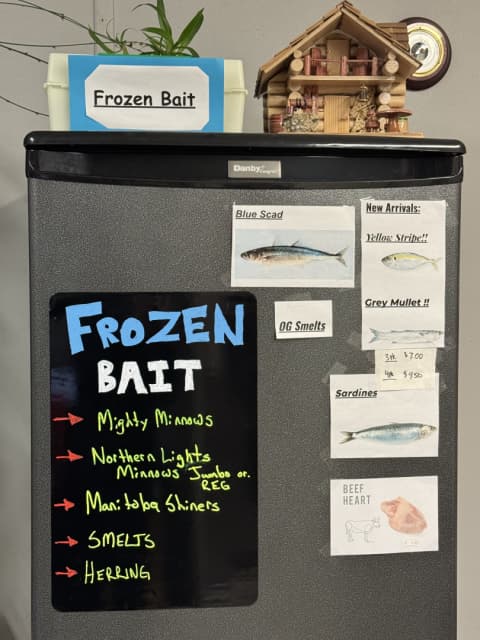 Frozen Bait
Danby
Blue Scad
New Arrivals:
Yellow Stripe!!
OG Smelts
Grey Mullet !!
3pk $7.00
4pk $9.50
Sardines
BEEF
HEART
FROZEN
BAIT
Mighty Minnows
Northern Lights
Minnows Jumbo or.
REG
Manitoba Shiners
SMELTS
HERRING